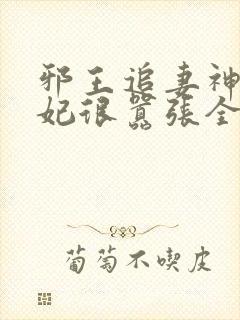 邪王追妻神
妃很嚣张全
葡萄不喫皮